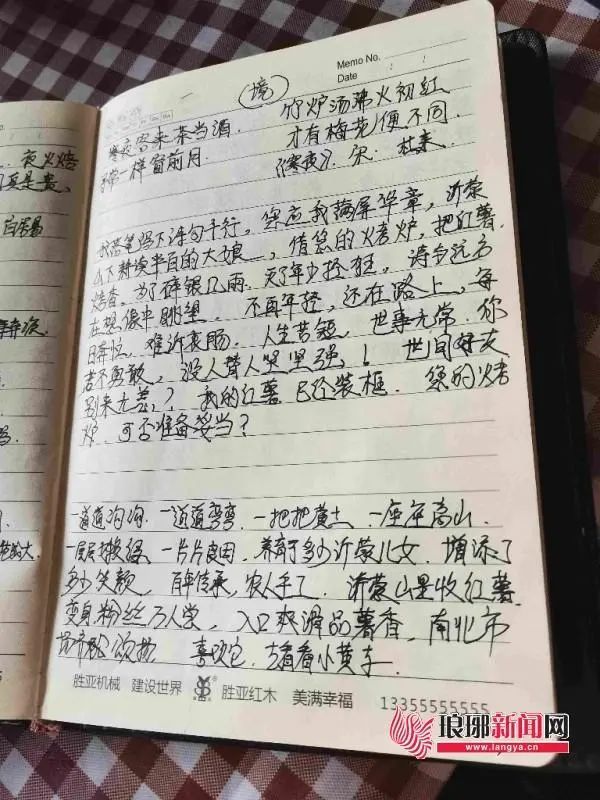 Memo No.
Date
一 (境)
寒夜客来茶当酒. 竹炉汤沸火初红
寻常一样窗前月. 才有梅花便不同.
《寒夜》 宋 杜耒
我落笔写下诗句千行, 您应我满屏华章, 沂蒙
山下耕读半百的大娘, 借您的烤炉, 把红薯
烤香. 岁碎银几两. 少轻狂. 诗与远方
在想像中眺望. 不再年轻, 还在路上, 每
日奔忙. 难诉衷肠. 人生苦短. 世事无常. 你
若不勇敢, 没人替你坚强! 世间好友
别来无恙? 我的红薯已经装框. 您的烤
炉. 可否准备妥当?
一道道沟沟. 一道道弯弯. 一把把黄土 一座座高山.
一层层梯. 一片片良田. 养育了多少沂蒙儿女. 增添了
多少笑颜. 百年传承, 农人手了. 沂蒙山里收红薯.
变身粉丝万人尝, 入口爽滑品薯香, 南北市
颂扬. 喜欢它. 请看小黄车.
胜亚机械 建设世界 胜亚红木 美满幸福 13355555555
夜火焙
白居易
琅琊新闻网
www.langya.cn